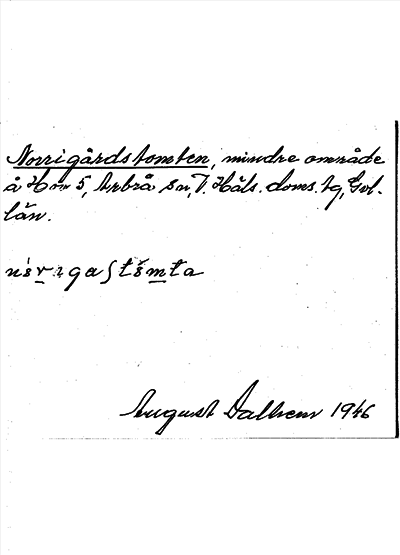 Norrigårdstomten, mindre område
å Hm 5, Arbrå sn, V. Häls. doms. tg, Gvl.
län.
August Dalhem 1946